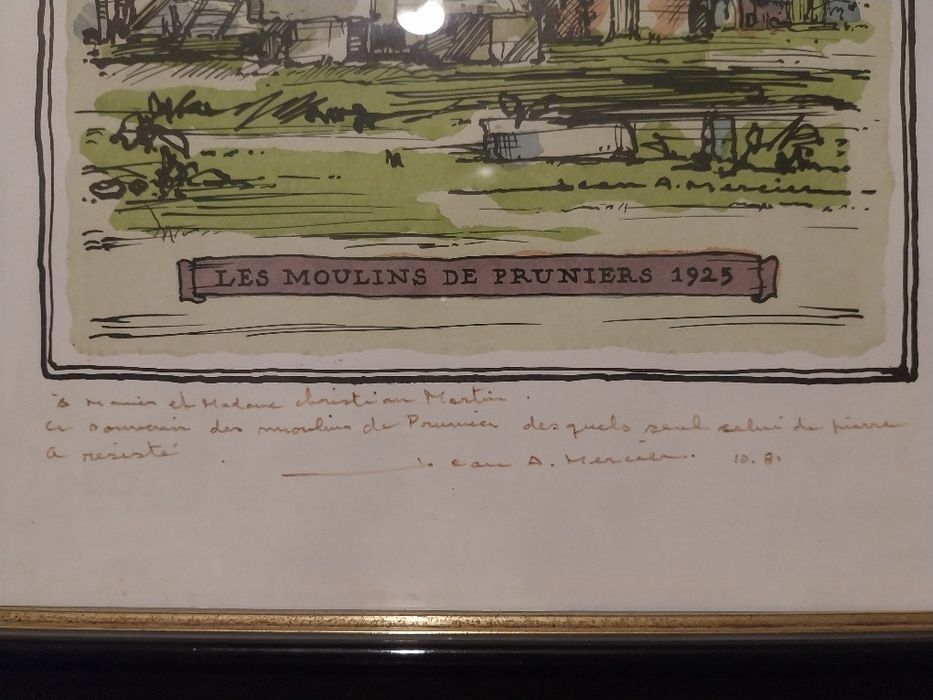 Jean A. Mercier
LES MOULINS DE PRUNIERS 1925
à Monsieur et Madame Christian Martin.
ce souvenir des moulins de Prunier desquels seul celui de pierre
a résisté.
Jean A. Mercier. 10.81